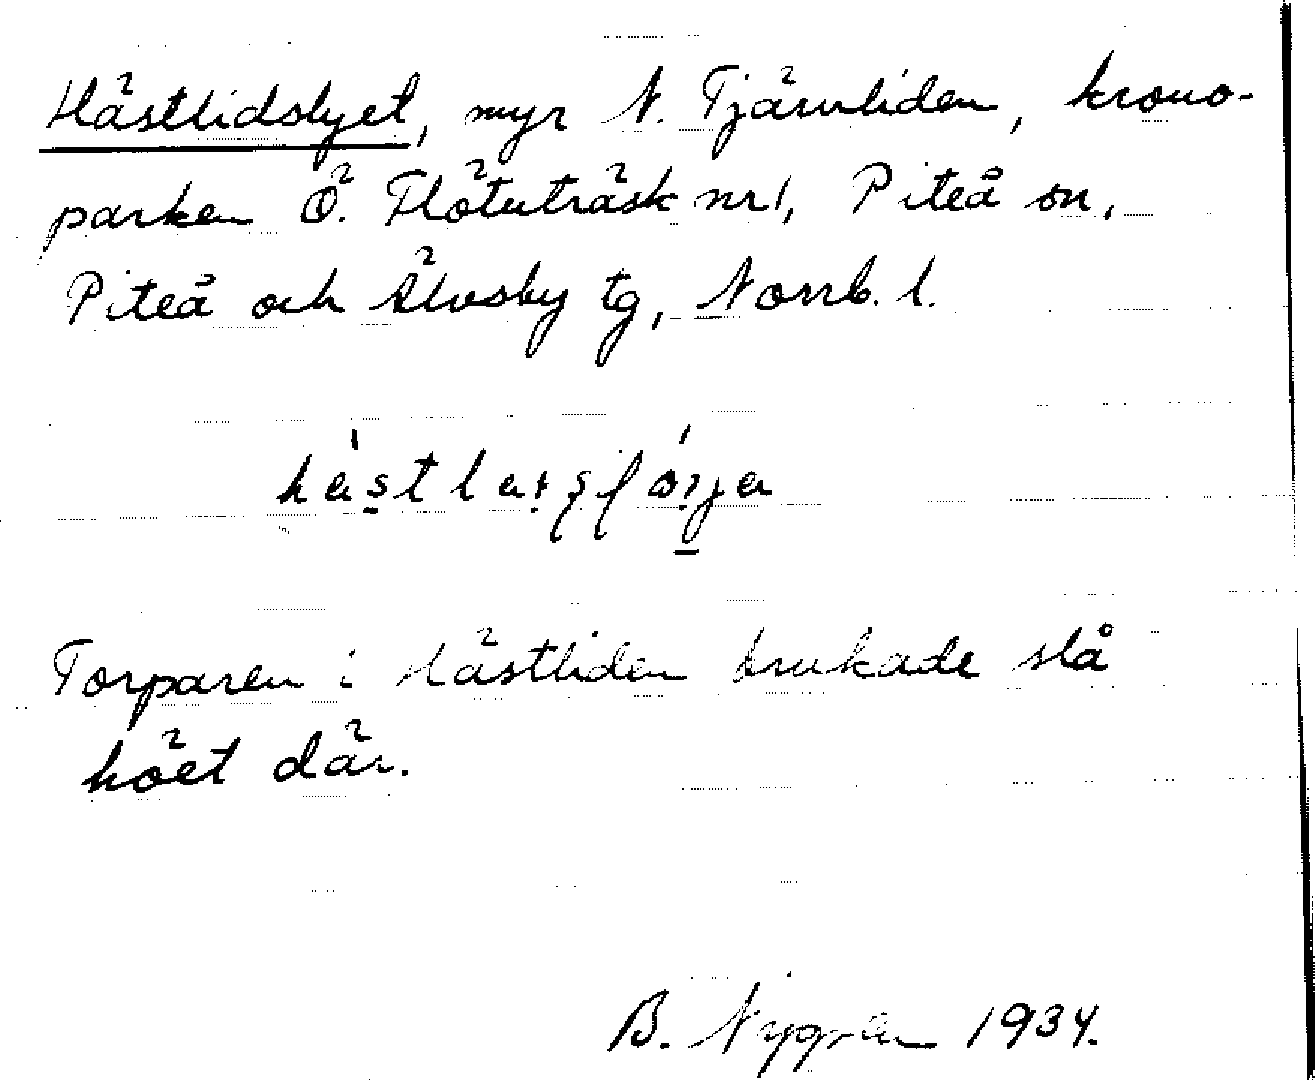 Hästlidslyet, myr N. Tjärnliden, krono-
parken Ö. Flötuträsk nr1, Piteå sn,
Piteå och Älvsby tg, Norrb. l.
Torparen i Hästliden brukade slå
höet där.
B. Nygren 1934.